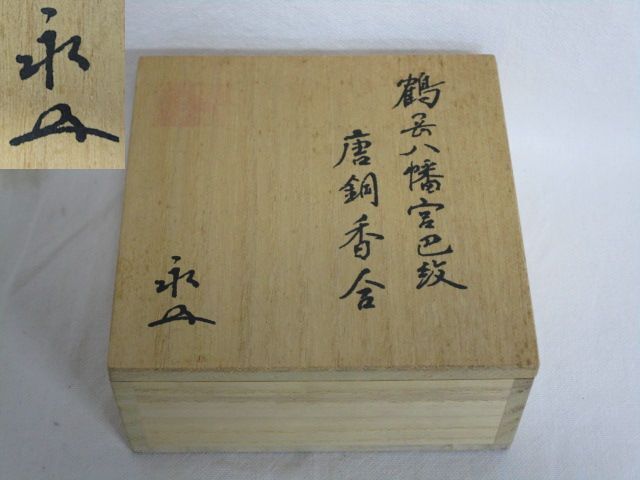 鶴岳八幡宮巴紋
唐銅香合
永
永